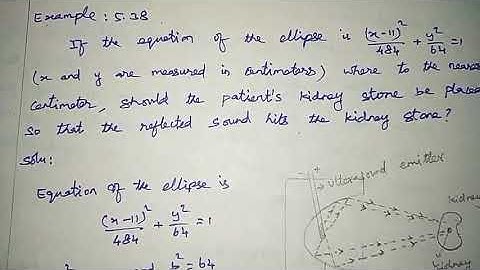 Example: 5.38
If the equation of the ellipse is (x-11)²/484 + y²/64 = 1
(x and y are measured in centimeters) where to the neares
centimeter, should the patient's kidney stone be place
so that the reflected sound hits the kidney stone?
Solu:
Equation of the ellipse is
(x-11)²/484 + y²/64 = 1
b² = 64
ultrasound emitter
kidney
kidney